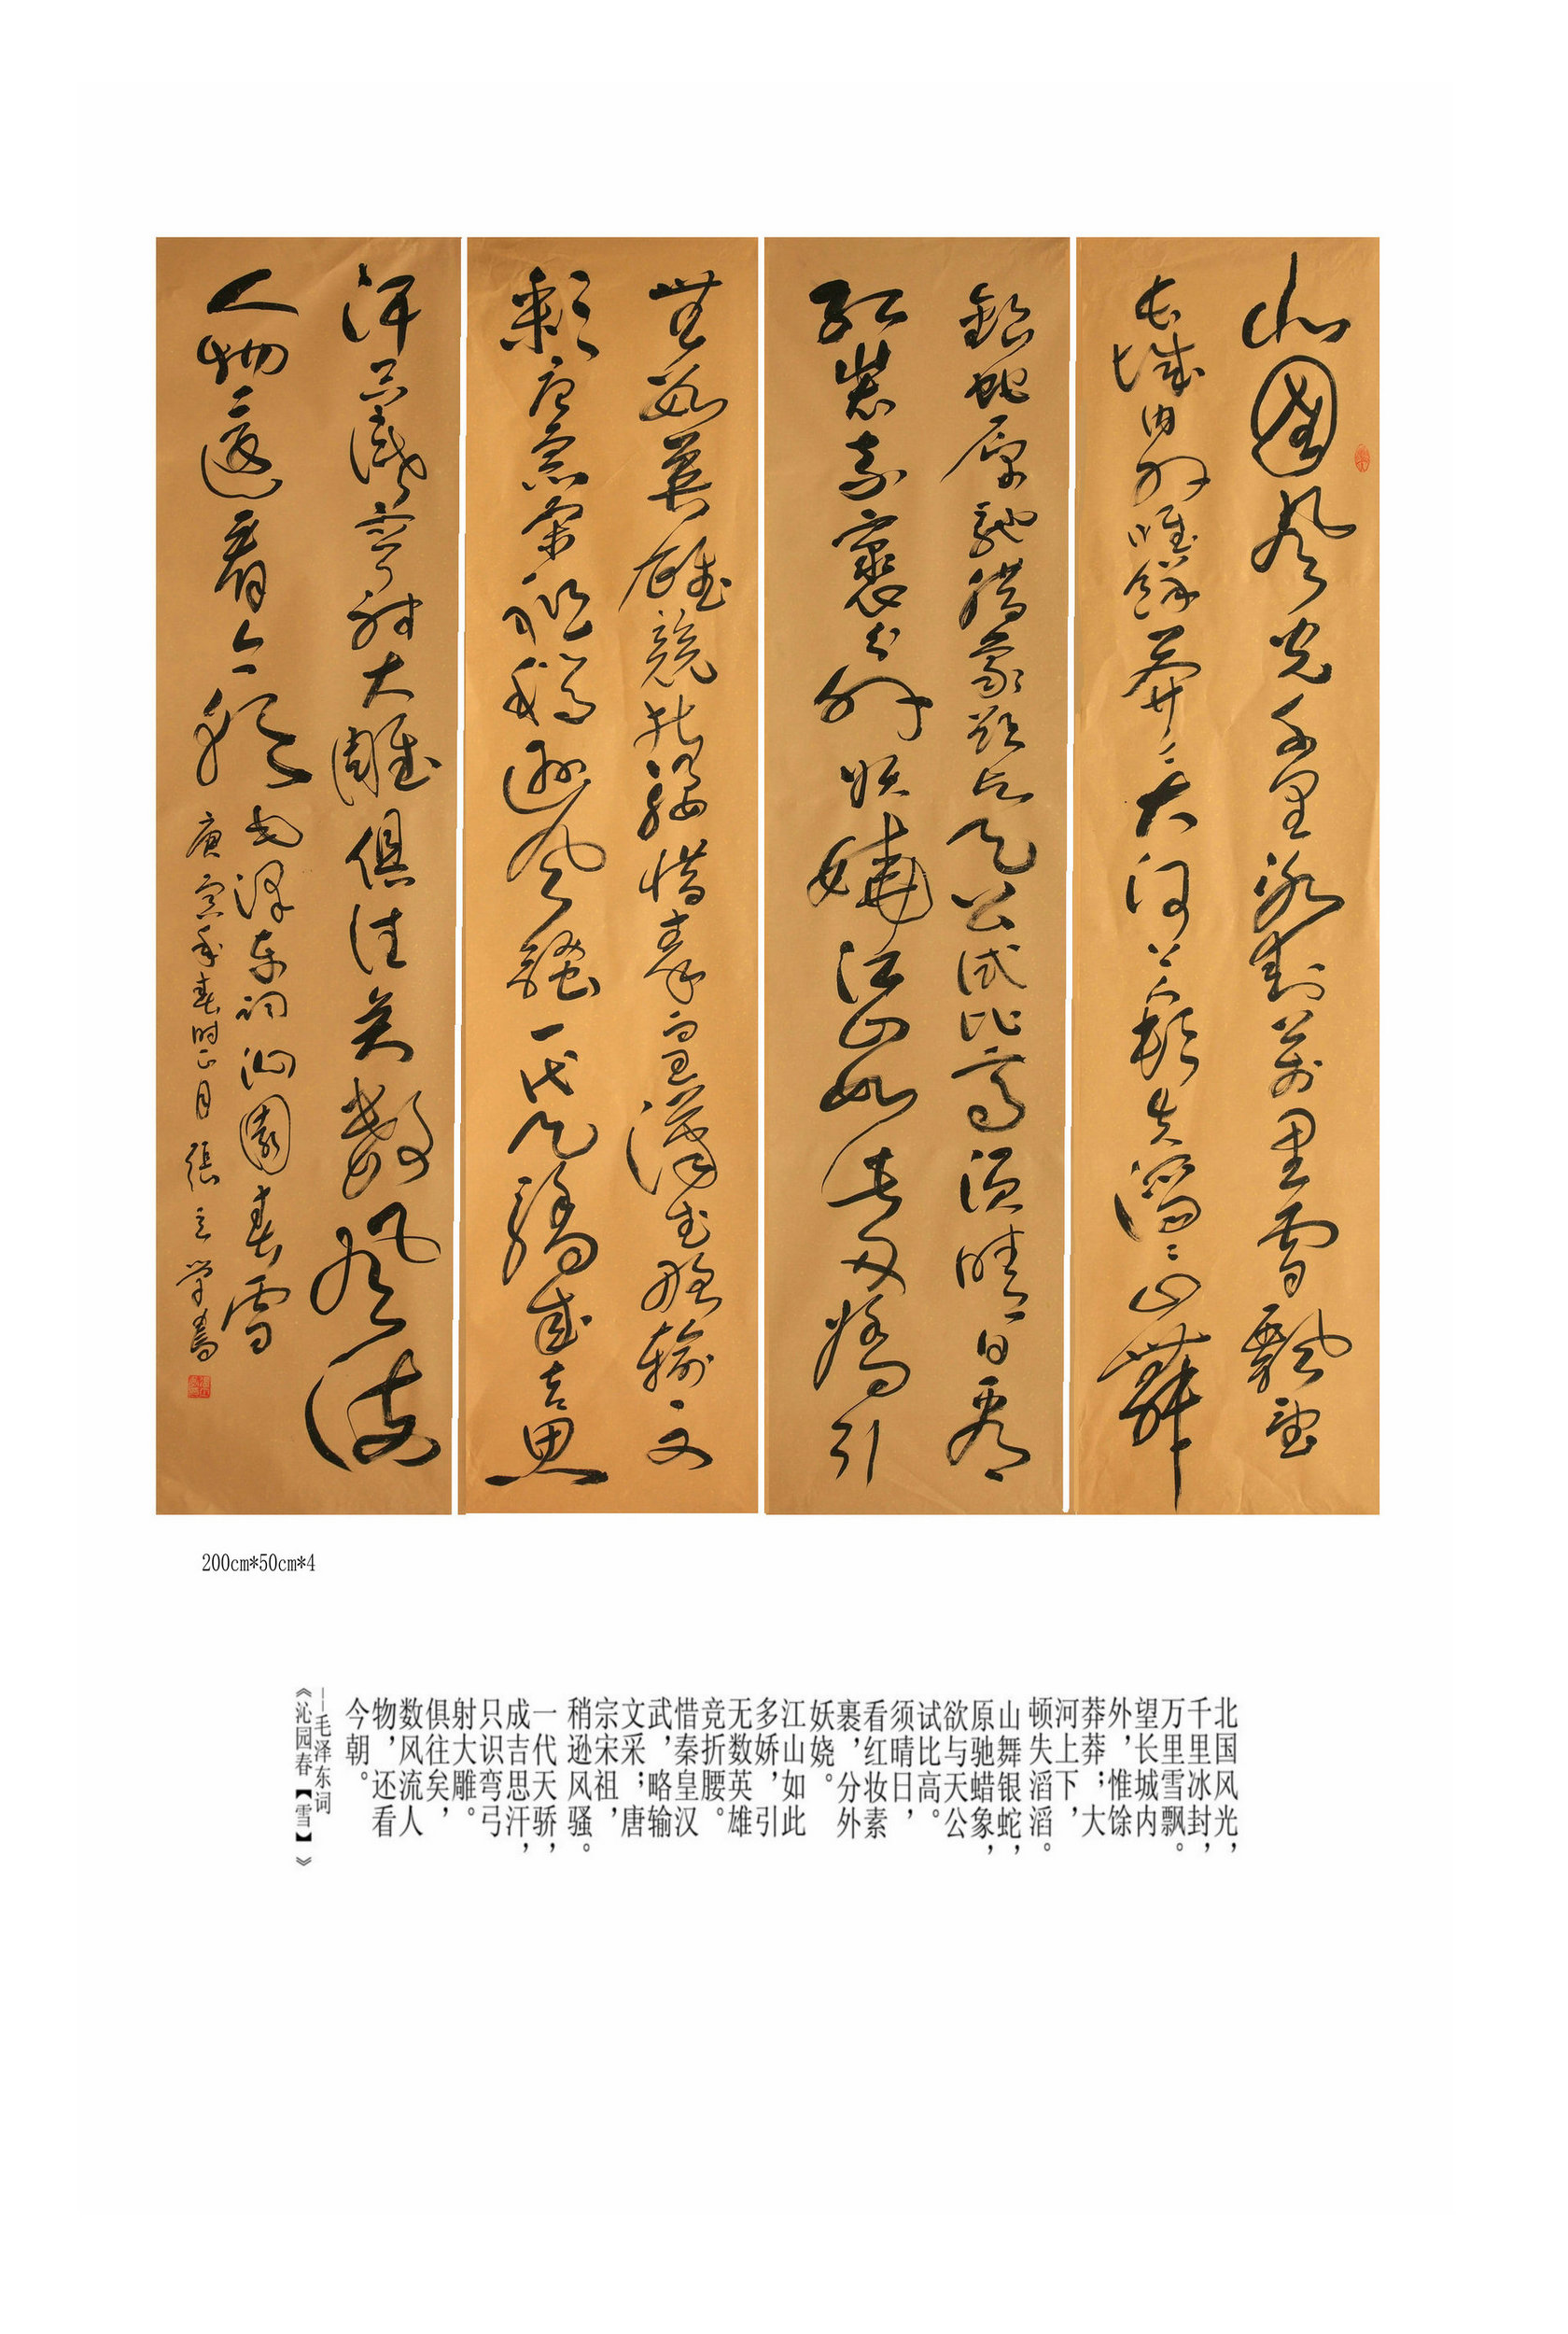 北國風光千里冰封萬里雪飄望
長城内外唯餘莽〻大河上下頓失滔〻山舞
銀蛇原馳腊象欲与天公试比高須晴日看
红裝素裹分外妖嬈江山如此多嬌引
無數英雄競折腰惜秦皇漢武略输文
彩唐宗宋祖稍遜風骚一代天驕成吉思
汗只識弯射大雕俱往矣數風流
人物還看今朝
毛泽东词沁園春雪
庚寅年春时正月張立学書
200cm*50cm*4
北国风光，
千里冰封，
万里雪飘。
望长城内
外，惟馀
莽莽；大
河上下，
顿失滔滔。
山舞银蛇，
原驰蜡象，
欲与天公
试比高。
须晴日，
看红妆素
裹，分外
妖娆。
江山如此
多娇，引
无数英雄
竞折腰。
惜秦皇汉
武，略输
文采；唐
宗宋祖，
稍逊风骚。
一代天骄，
成吉思汗，
只识弯弓
射大雕。
俱往矣，
数风流人
物，还看
今朝。
--毛泽东词
《沁园春【雪】》